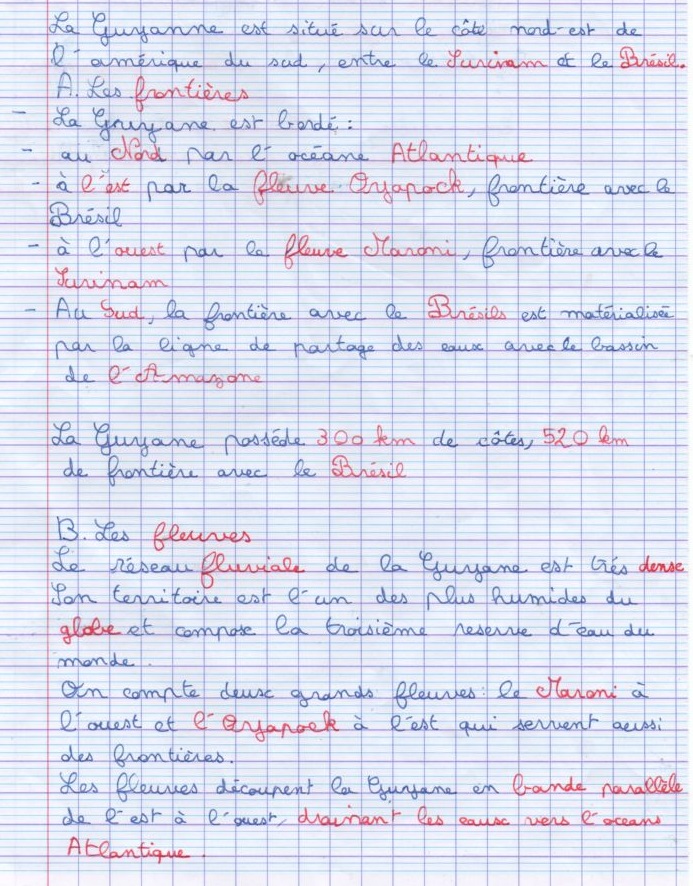 La Guyanne est situé sur le côte nord-est de
l'amérique du sud, entre le Surinam et le Brésil.
A. Les frontières
- La Guyane est bordé :
- au Nord par l'océane Atlantique
- à l'est par la fleuve Oyapock, frontière avec le
Brésil
- à l'ouest par le fleuve Maroni, frontière avec le
Surinam
- Au Sud, la frontière avec le Brésils est matérialisée
par la ligne de partage des eaux avec le bassin
de l'Amazone
La Guyane posséde 300 km de côtes, 520 km
de frontière avec le Brésil
B. Les fleuves
Le réseau fluviale de la Guyane est trés dense
Son territoire est l'un des plus humides du
globe et compose la troisième reserve d'eau du
monde.
On compte deux grands fleuves : le Maroni à
l'ouest et l'Oyapock à l'est qui servent aussi
des frontières.
Les fleuves découpent la Guyane en bande parallèle
de l'est à l'ouest, drainant les eaux vers l'oceans
Atlantique.